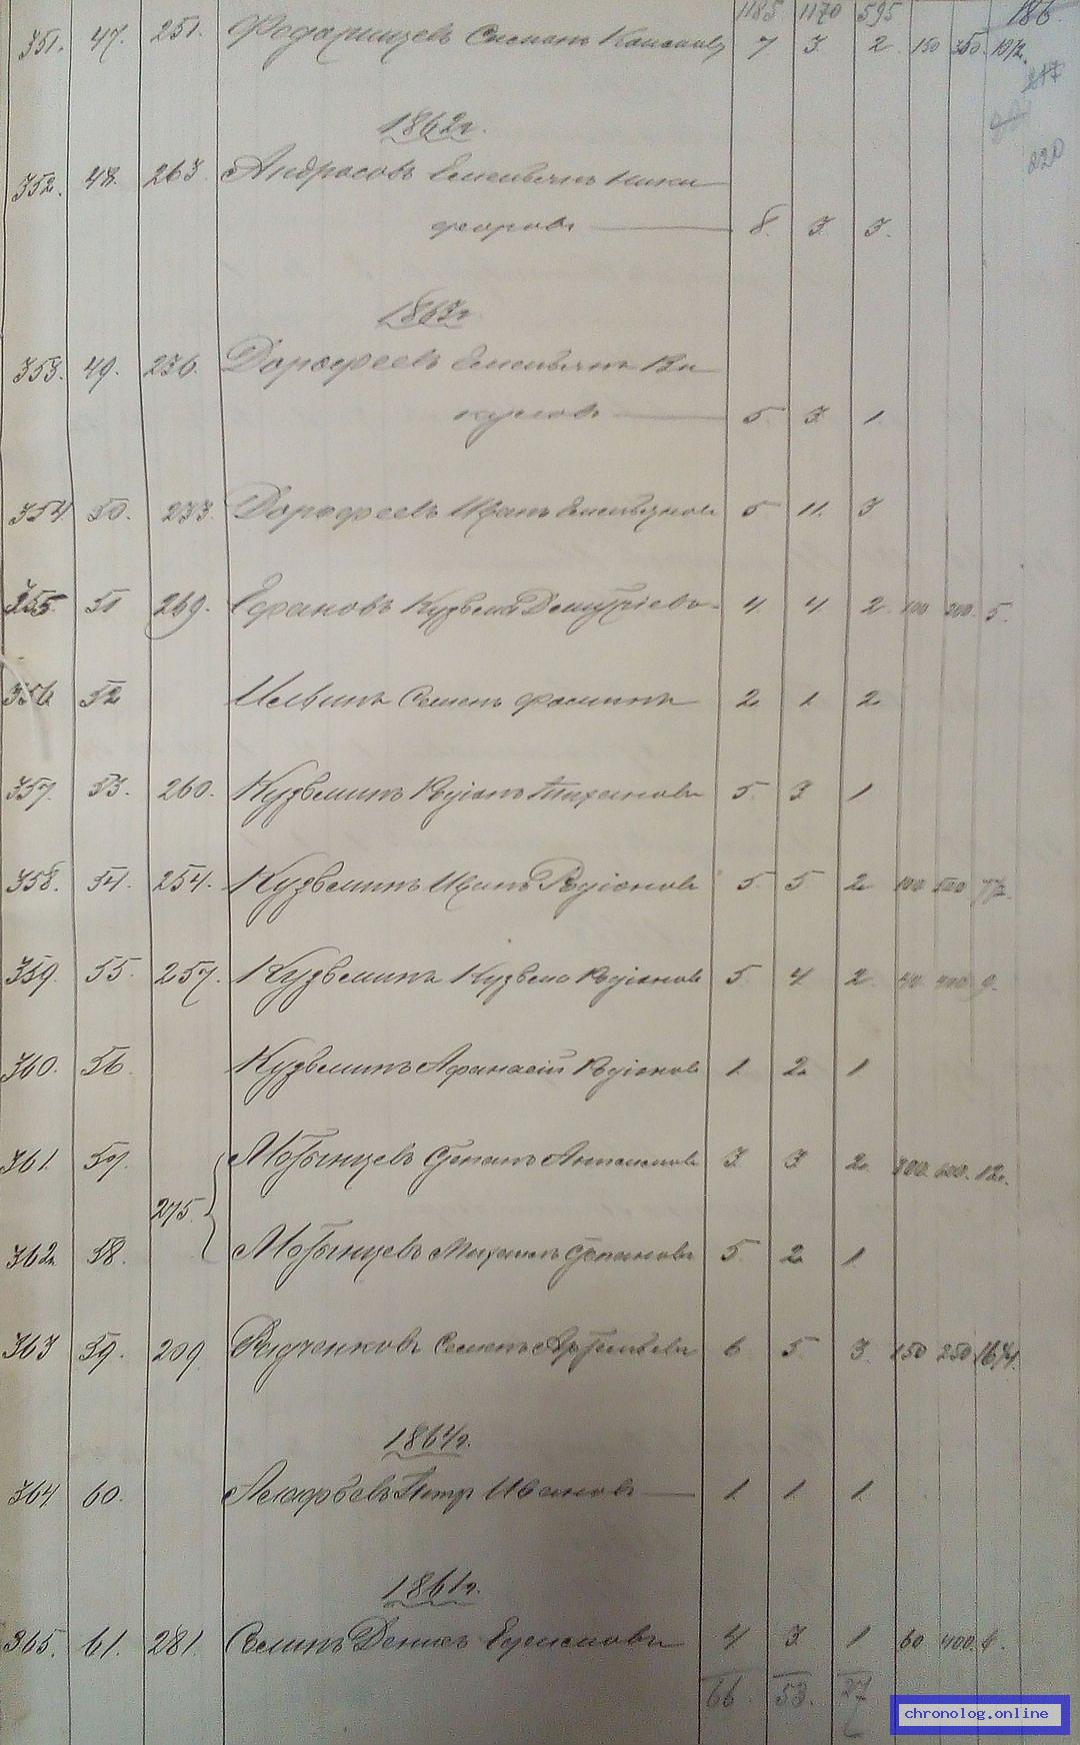 1185 1170 595 186
351. 47. 251. Федаринцевъ 7 3 2 150 350
217
1862г.
220
352. 48. 263. Андросовъ Емельянъ Ники
форовъ 8. 3. 3.
1863г.
353. 49. 236. Дорофеевъ Емельянъ Ви
куловъ 5 3 1
354. 50. 233. Дорофеевъ Иванъ Емельяновъ 5 11. 3
355. 51 269. Ефановъ Кузьма Дмитріевъ 4. 4 2. 100 200. 5.
356 52 Ильинъ Семенъ Фоминъ 2. 1 2.
357. 53. 260. Кузьминъ Родіонъ Тихановъ 5. 3 1
358. 54. 254. Кузьминъ Иванъ Родіоновъ 5. 5 2. 100 500
359. 55. 257. Кузьминъ Кузьма Родіоновъ 5. 4. 2. 400. 9.
360. 56 Кузьминъ Афанасій Родіоновъ 1. 2. 1
361. 57. Мотынцевъ Степанъ Антоновъ 3. 3 2. 300. 600. 12.
275.
362. 58. Мотынцевъ Михаилъ Степановъ 5 2. 1.
363 59. 209. Радченковъ Семенъ Артемьевъ 6 5. 3. 150 250
1864г.
364 60. Петр Ивановъ 1. 1. 1.
1861г.
365. 61. 281. Селинъ Денисъ 4 3. 1 60 400. 6.
66. 53. 27
chronolog.online